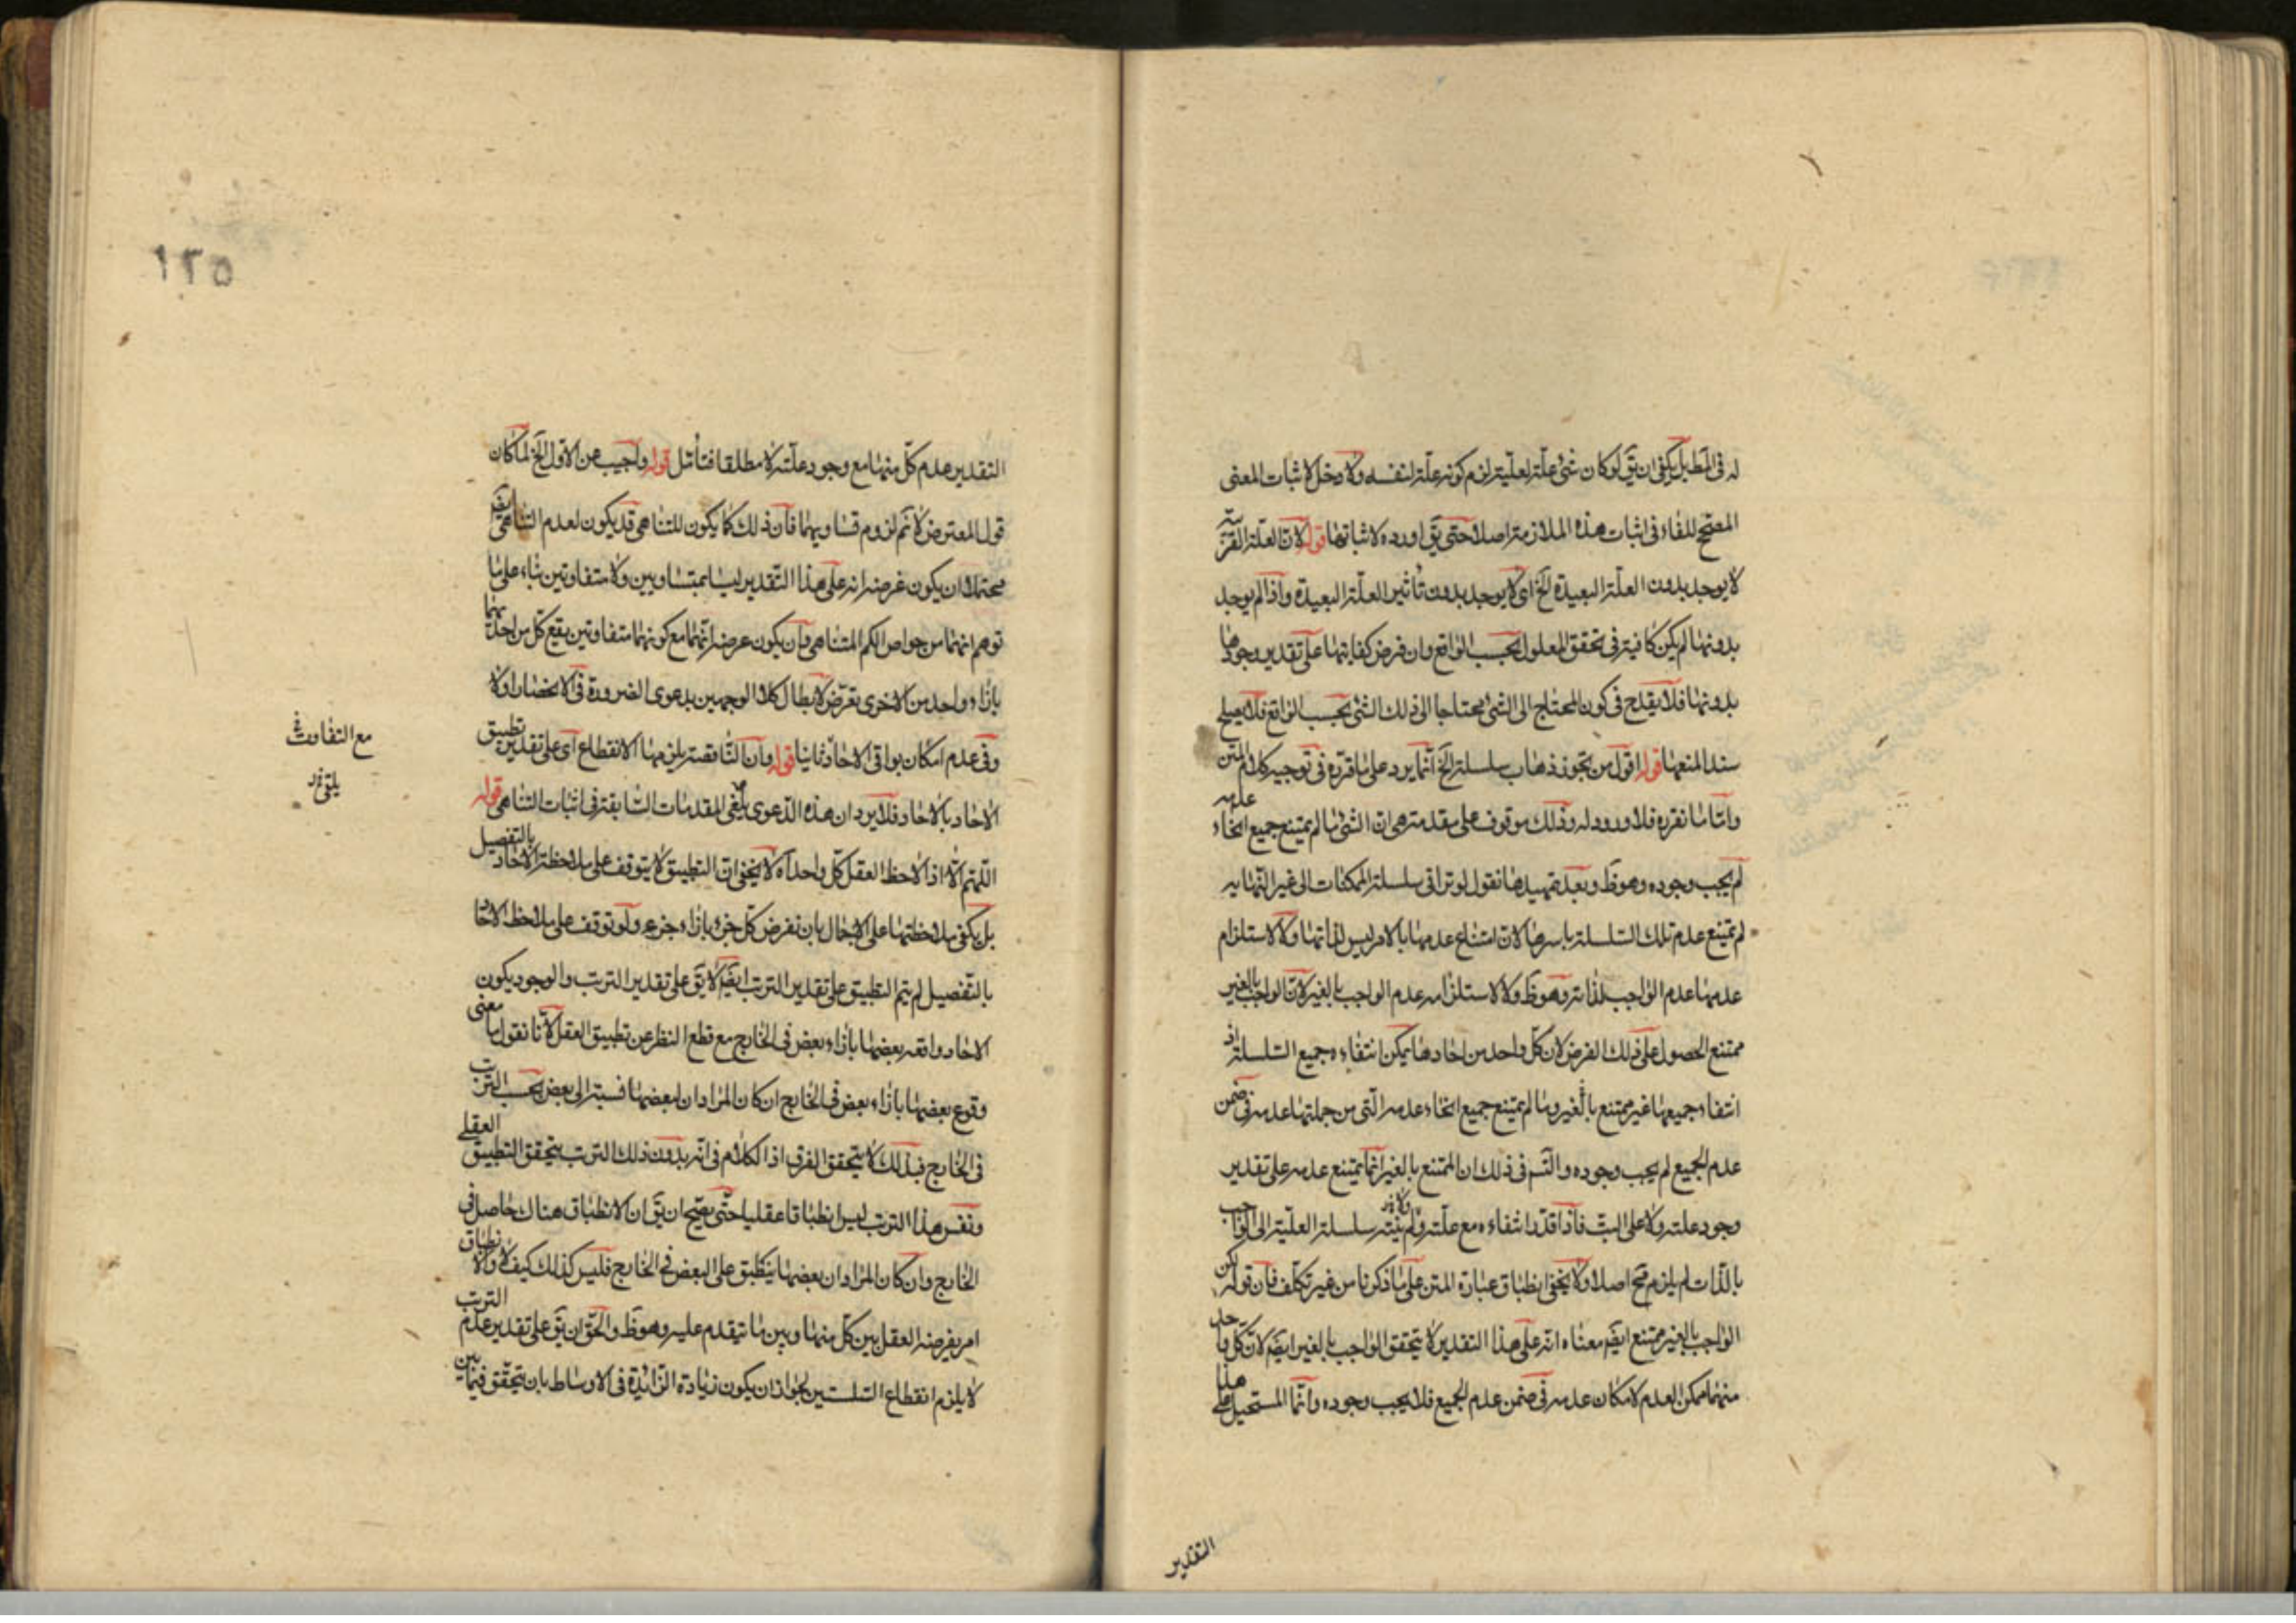 له فى المط بل يكفى ان يق لو كان شئ علة لعليته لزم كونه علة لنفسه ولا دخل لاثبات المعنى
المصحح للفاء فى اثبات هذه الملازمة اصلا حتى يق اورده لاثباتها قوله لان العلة القريبة
لا يوجد بدون العلة البعيدة الخ اى لا يوجد بدون تأثير العلة البعيدة واذا لم يوجد
بدونها لم يكن كافية فى تحقق المعلول بحسب الواقع وان فرض كفايتها على تقدير وجودها
بدونها فلا يقدح فى كون المحتاج الى الشئ محتاجا الى ذلك الشئ بحسب الواقع فلا يصلح
سندا لمنعها قوله اقول من يجوز ذهاب سلسلة الخ انما يرد على ما قرره فى توجيه كلام المتن
واما ما نقرره فلا ورود له وذلك موقوف على مقدمة هى ان الشئ ما لم يمتنع جميع انحاء عدمه
لم يجب وجوده وهو ظ وبعد تمهيدها نقول لو تراقى سلسلة الممكنات الى غير النهايه
لم يمتنع عدم تلك السلسلة باسرها لان امتناع عدمها بالامر ليس لذاتها ولا لاستلزام
عدمها عدم الواجب لذاته وهو ظ ولا لاستلزامه عدم الواجب بالغير لان الواجب بالغير
ممتنع الحصول على ذلك الفرض لان كل واحد من احادها يمكن انتفاءه وجميع السلسلة اذ
انتفاء جميعها غير ممتنع بالغير وما لم يمتنع جميع انحاء عدمه التى من جملتها عدمه فى ضمن
عدم الجميع لم يجب وجوده والسر فى ذلك ان الممتنع بالغير انما يمتنع عدمه على تقدير
وجود علته ولا على البت فاذا قدر انتفاءه مع علته ولم ينته سلسلة العلية الى الواجب
بالذات لم يلزم مح اصلا ولا يخفى انطباق عبارة المتن على ما ذكرنا من غير تكلف فان قوله لكن
الواجب بالغير ممتنع ايضا معناه انه على هذا التقدير لا يتحقق الواجب بالغير ايضا لان كل واحد
منهما ممكن العدم لامكان عدمه فى ضمن عدم الجميع فلا يجب وجوده وانما المستحيل على هذا
التقدير
١٢٥
التقدير عدم كل منهما مع وجود علته لا مطلقا فتأمل قوله واجيب عن الاول الخ لما كان
قول المعترض لا نم لزوم تساويهما فان ذلك كما يكون للتناهى قد يكون لعدم التناهى
محتملا ان يكون غرضه انه على هذا التقدير ليسا بمتساويين ولا متفاوتين بناء على ما
توهم انهما من خواص الكم المتناهى وان يكون غرضه انهما مع كونهما متفاوتين يقع كل من احديهما
بازاء واحد من الاخرى تعرض لابطال كلا الوجهين بدعوى الضرورة فى الانحصار اولا
وفى عدم امكان بواقى الاحاد ثانيا قوله وان الناقصة يلزمها الانقطاع اى على تقدير تطبيق
الاحاد بالاحاد فلا يرد ان هذه الدعوى يلغى المقدمات السابقة فى اثبات التناهى قوله
اللهم الا اذا لاحظ العقل كل واحد اه لا يخفى ان التطبيق لا يتوقف على ملاحظة الاحاد بالتفصيل
بل يكفى ملاحظتها على الاجمال بان نفرض كل جزء بازاء جزء ولو توقف على ملاحظة الاحاد
بالتفصيل لم يتم التطبيق على تقدير الترتب ايضا لا يق على تقدير الترتب والوجود يكون
الاحاد واقعه بعضها بازاء بعض فى الخارج مع قطع النظر عن تطبيق العقل لانا نقول ما معنى
وقوع بعضها بازاء بعض فى الخارج ان كان المراد ان لبعضها نسبة الى بعض بحسب الترتب
فى الخارج فبذلك لا يتحقق الفرق اذ الكلام فى انه بدون ذلك الترتب يتحقق التطبيق العقلى
ونفس هذا الترتب ليس انطباقا عقليا حتى يصح ان يق ان الانطباق هناك حاصل فى
الخارج وان كان المراد ان بعضها ينطبق على البعض فى الخارج فليس كذلك كيف لا والانطباق
امر يفرضه العقل بين كل منها وبين ما يتقدم عليه وهو ظ والحق ان يق على تقدير عدم الترتب
لا يلزم انقطاع السلسلتين لجواز ان يكون زيادة الزائدة فى الاوساط بان يتحقق فيما بين
مع التفاوت